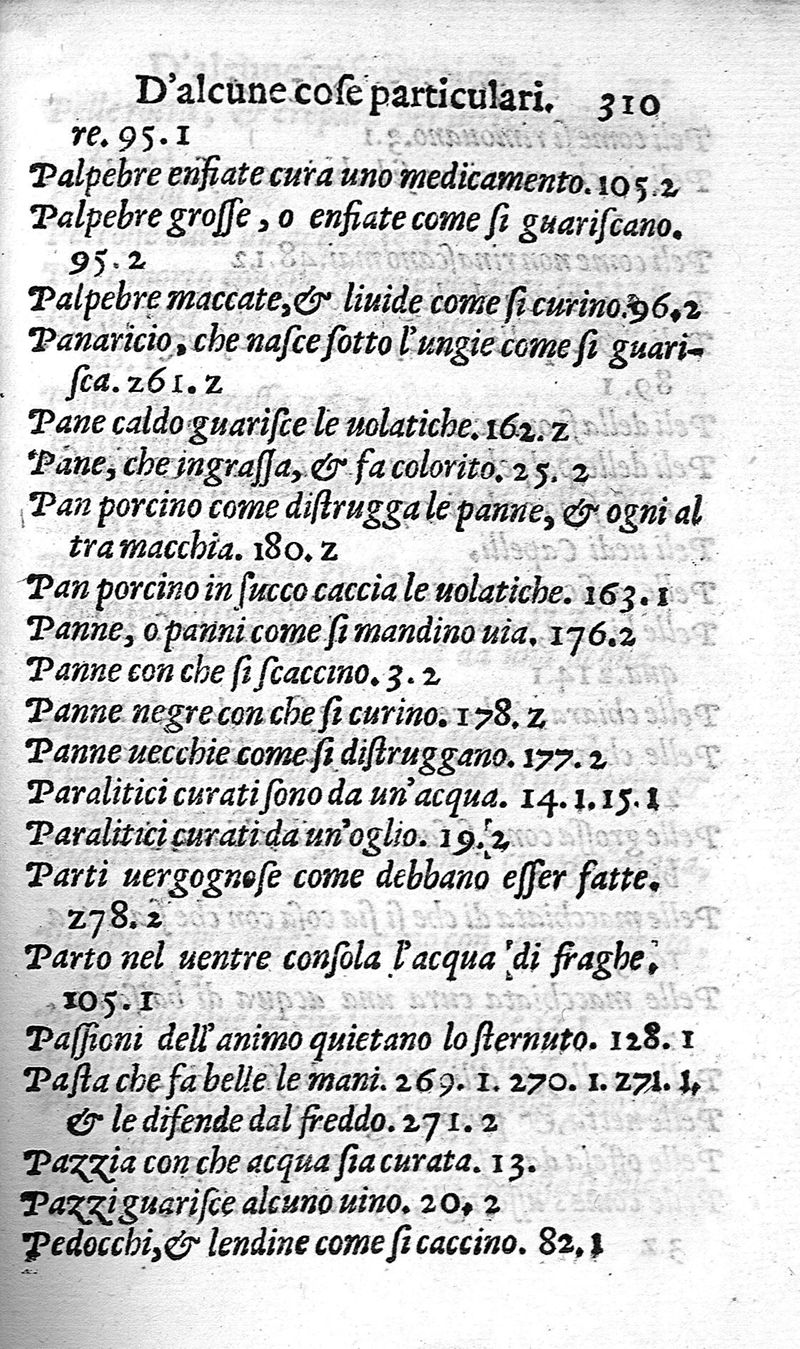 D'alcune coſe particulari. 310
re. 95. 1
Palpebre enfiate cura uno medicamento. 105. 2
Palpebre groſſe, o enfiate come ſi guariſcano.
95. 2
Palpebre maccate, & liuide come ſi curino. 96. 2
Panaricio, che naſce ſotto l'ungie come ſi guari-
ſca. 261. 2
Pane caldo guariſce le uolatiche. 162. 2
Pane, che ingraſſa, & fa colorito. 25. 2
Pan porcino come diſtrugga le panne, & ogni al
tra macchia. 180. 2
Pan porcino in ſucco caccia le uolatiche. 163. 1
Panne, o panni come ſi mandino uia. 176. 2
Panne con che ſi ſcaccino. 3. 2
Panne negre con che ſi curino. 178. 2
Panne uecchie come ſi diſtruggano. 177. 2
Paralitici curati ſono da un'acqua. 14. 1. 15. 1
Paralitici curati da un'oglio. 19. 2
Parti uergognoſe come debbano eſſer fatte.
278. 2
Parto nel uentre conſola l'acqua di fraghe.
105. 1
Paſſioni dell'animo quietano lo ſternuto. 128. 1
Paſta che fa belle le mani. 269. 1. 270. 1. 271. 1.
& le difende dal freddo. 271. 2
Pazzia con che acqua ſia curata. 13.
Pazzi guariſce alcuno uino. 20. 2
Pedocchi, & lendine come ſi caccino. 82. 1